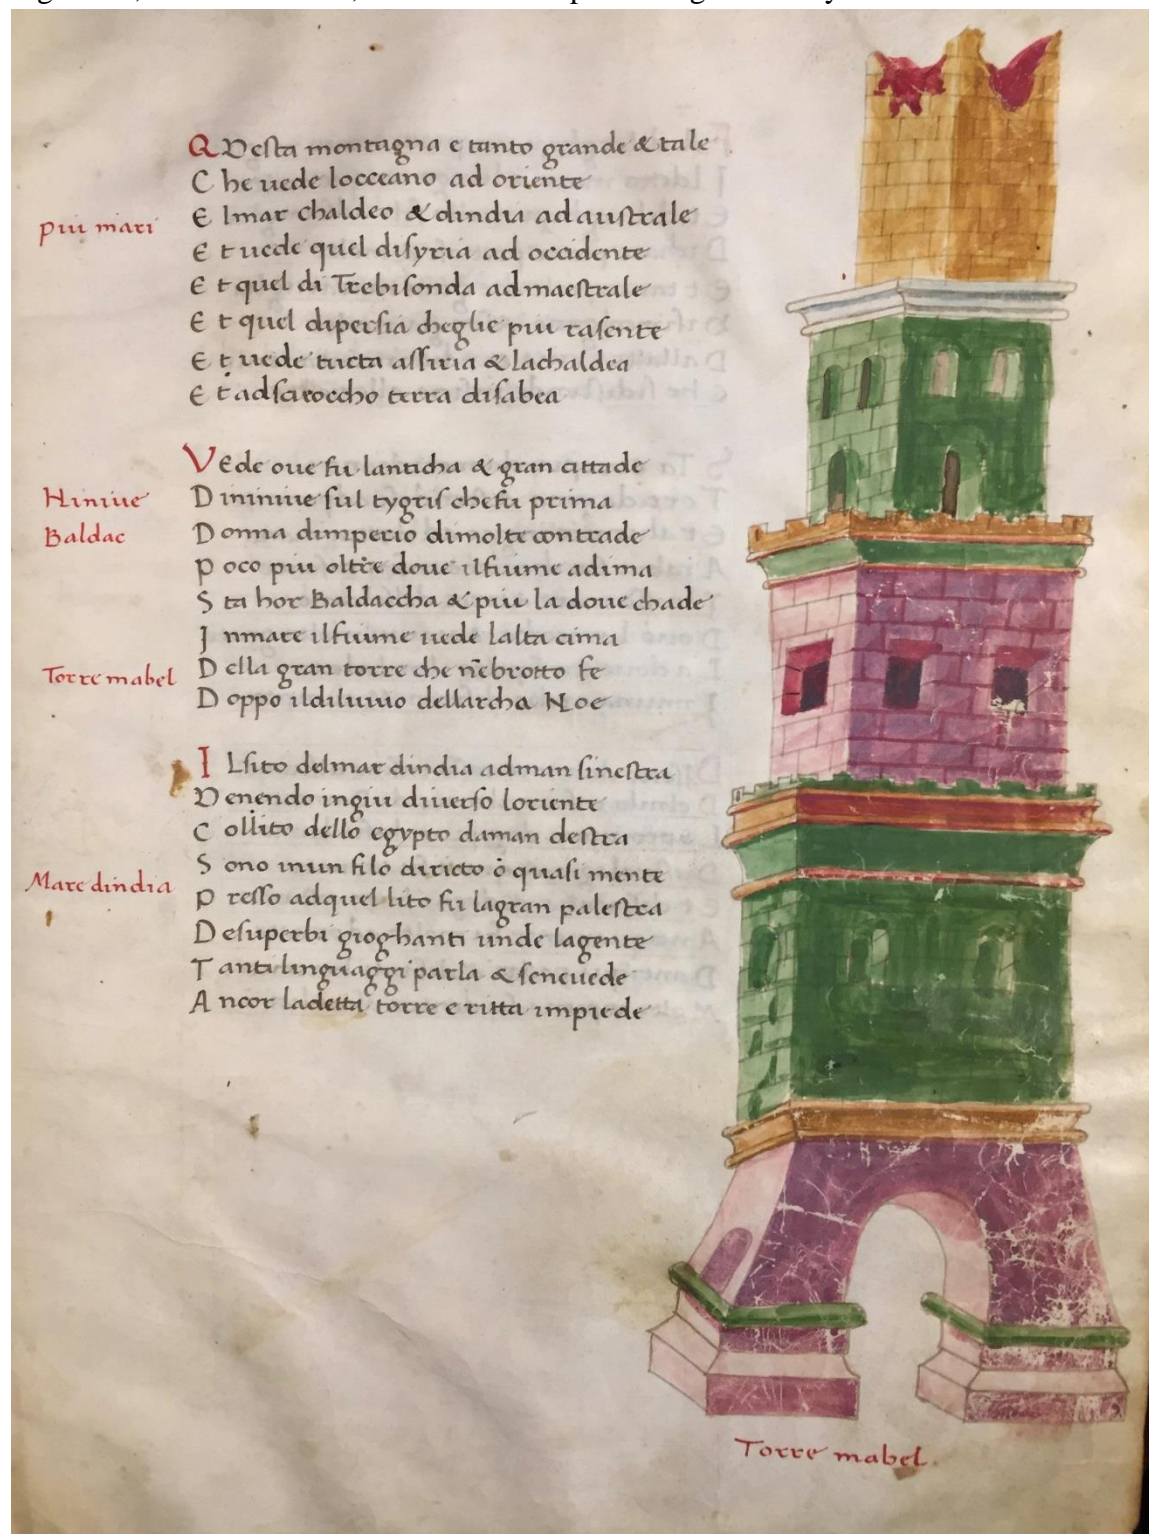 QVesta montagna e tanto grande & tale
Che uede locceano ad oriente
piu mari
Elmar chaldeo & dindia ad australe
Et uede quel disyria ad occidente
Et quel di Trebisonda admaestrale
Et quel dipersia cheglie piu rasente
Et uede tucta assiria & lachaldea
Et adsciroccho terra disabea
VEde oue fu lanticha & gran cittade
Niniue
Dininiue sul tygris chefu prima
Baldac
Donna dimperio dimolte contrade
Poco piu oltre doue ilfiume adima
Sta hor Baldaccha & piu la doue chade
Inmare ilfiume uede lalta cima
Torre mabel
Della gran torre che nebrotto fe
Doppo ildiluuio dellarcha Noe
ILsito delmar dindia adman sinestra
Venendo ingiu diuerso loriente
Collito dello egypto daman destra
Sono inun filo diricto o quasi mente
Mare dindia
Presso adquel lito fu lagran palestra
Desuperbi gioghanti unde lagente
Tanti linguaggi parla & seneuede
Ancor ladetta torre e ritta impiede
Torre mabel.